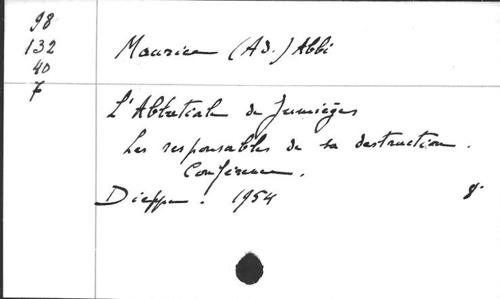 98
132
40
7
Maurice (Ad.) Abbé
L'Abbatiale de Jumièges
Les responsables de sa destruction.
Conférence.
Dieppe. 1954 8°